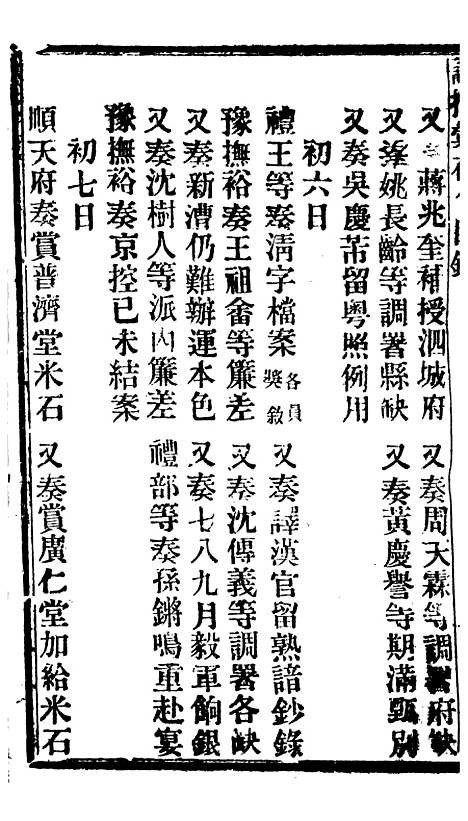 諭摺彙存
目錄
又奏蔣兆奎補授泗城府 又奏周天霖等調署府缺
又奏姚長齡等調署縣缺 又奏黃慶譽等期滿甄別
又奏吳慶芾留粵照例用
初六日
禮王等奏清字檔案各員獎敘 又奏譯漢官留熟諳鈔錄
豫撫裕奏王祖畬等簾差 又奏沈傳義等調署各缺
又奏新漕仍難辦運本色 又奏七八九月毅軍餉銀
又奏沈樹人等派內簾差 禮部等奏孫鏘鳴重赴宴
豫撫裕奏京控已未結案
初七日
順天府奏賞普濟堂米石 又奏賞廣仁堂加給米石